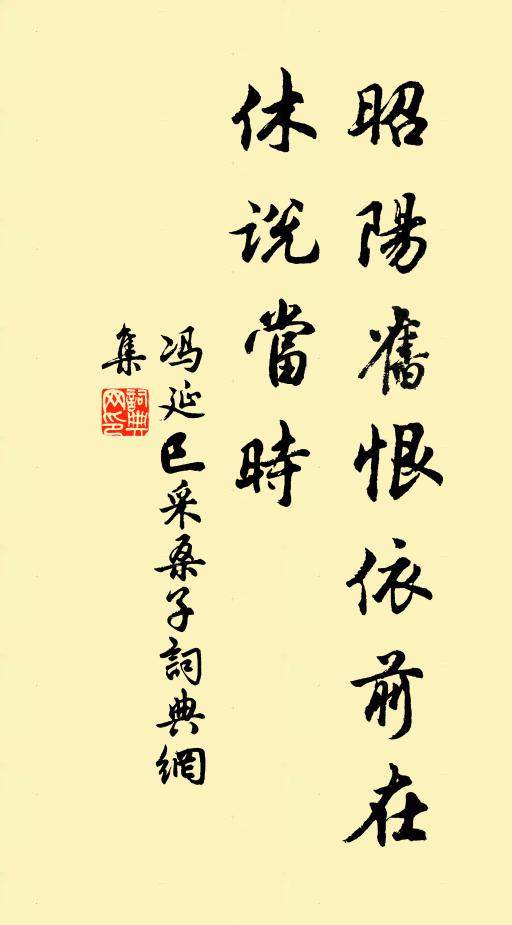 昭陽舊恨依前在
休説當時
冯延巳采桑子詞典網
集
詞典
网印